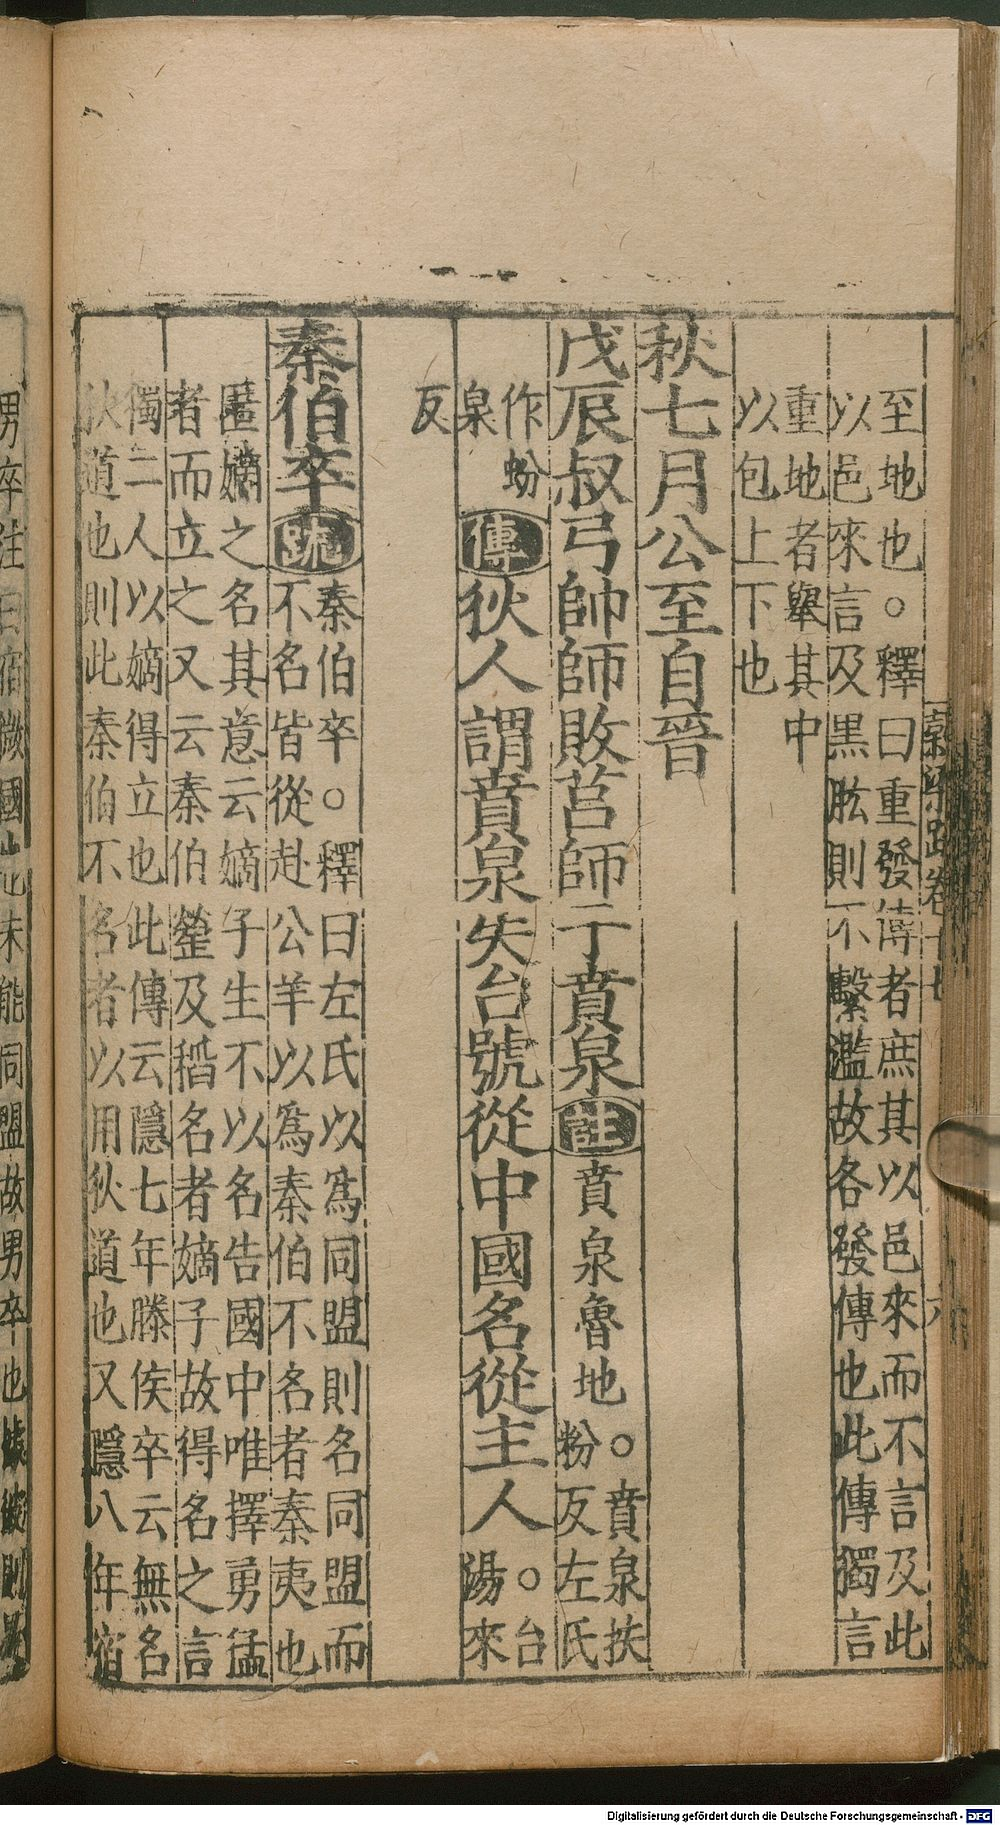 至地也○釋曰重發傳者庶其以邑來而不言及此
以邑來言及黑肱則不繫濫故各發傳也此傳獨言
重地者舉其中
以包上下也
秋七月公至自晉
戊辰叔弓帥師敗莒師于賁泉註賁泉魯地○賁泉扶
粉反左氏
作蚡
泉
傳狄人謂賁泉失台號從中國名從主人○台
湯來
反
秦伯卒疏秦伯卒○釋曰左氏以爲同盟則名同盟而
不名皆從赴公羊以爲秦伯不名者秦夷也
匿嫡之名其意云嫡子生不以名告國中唯擇勇猛
者而立之又云秦伯罃及稻名者嫡子故得名之言
獨二人以嫡得立也此傳云隱七年滕侯卒云無名
狄道也則此秦伯不名者以用狄道也又隱八年宿
男卒注曰宿微國也未能同盟故男卒也據彼則
梁疏卷十七
六
Digitalisierung gefördert durch die Deutsche Forschungsgemeinschaft - DFG